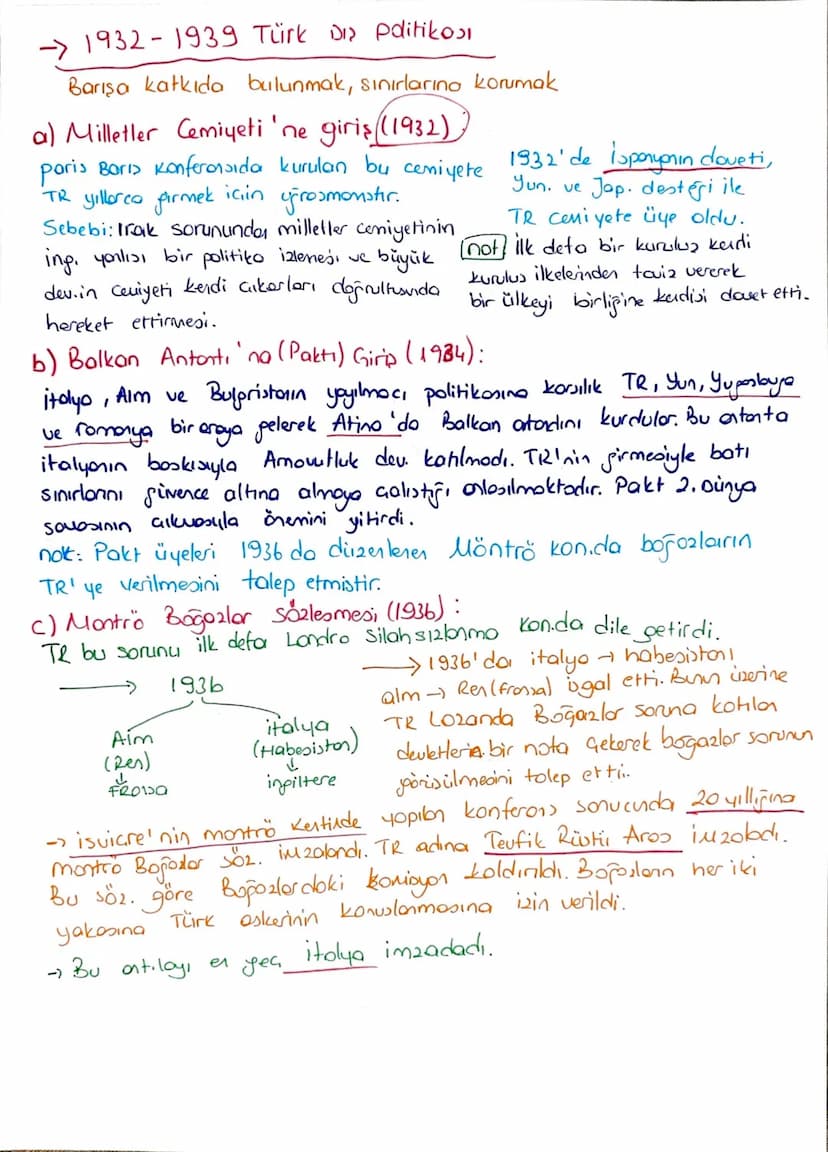 → 1932 - 1939 Türk Dış Politikası
Barışa katkıda bulunmak, sınırlarını korumak
a) Milletler Cemiyeti'ne giriş (1932)
paris Barış Konferansıda kurulan bu cemiyete
TR yıllarca girmek için uğraşmıştır.
Sebebi: Irak sorununda milletler cemiyetinin
ing. yanlısı bir politika izlemesi ve büyük
dev.in Cemiyeti kendi çıkarları doğrultusunda
hareket ettirmesi.
1932'de İspanyanın daveti,
Yun. ve Jap. desteği ile
TR cemiyete üye oldu.
not İlk defa bir kuruluş kendi
kuruluş ilkelerinden taviz vererek
bir ülkeyi birliğine kendisi davet etti.
b) Balkan Antantı'na (Paktı) Giriş (1934):
italya, Alm ve Bulgristanın yayılmacı politikasına karşılık TR, Yun, Yugoslavya
ve romanya bir araya gelerek Atina'da Balkan atantını kurdular. Bu antanta
italyanın baskısıyla Arnavutluk dev. katılmadı. TR'nin girmesiyle batı
sınırlarını güvence altına almaya çalıştığı anlaşılmaktadır. Pakt 2. Dünya
savaşının çıkmasıyla önemini yitirdi.
not: Pakt üyeleri 1936 da düzenlenen Möntrö kon.da boğazların
TR'ye verilmesini talep etmiştir.
c) Montrö Boğazlar Sözleşmesi (1936):
TR bu sorunu ilk defa Londra Silahsızlanma kon.da dile getirdi.
→ 1936
Alm
(Ren)
↓
Fransa
italya
(Habeşistan)
↓
ingiltere
→ 1936'da italya → habeşistanı
alm → Ren (fransa) işgal etti. Bunun üzerine
TR Lozanda Boğazlar soruna katılan
devletlerin bir nota çekerek boğazlar sorunun
görüşülmesini talep etti.
→ isviçre'nin montrö kentinde yapılan konferans sonucunda 20 yıllığına
montrö Boğazlar söz. imzalandı. TR adına Tevfik Rüştü Aras imzaladı.
Bu söz. göre Boğazlardaki komisyon kaldırıldı. Boğazların her iki
yakasına Türk askerinin konuşlanmasına izin verildi.
→ Bu ant.layı en geç italya imzadadı.